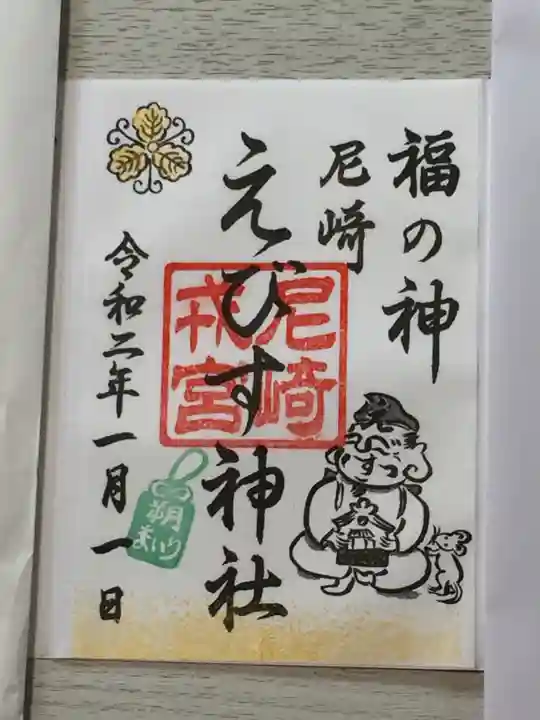 福の神
尼崎
えびす神社
尼崎
戎宮
令和二年一月一日
朔
まいり
えびす